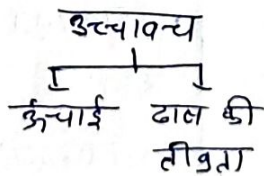 उच्चावच
ऊँचाई ढाल की
तीव्रता